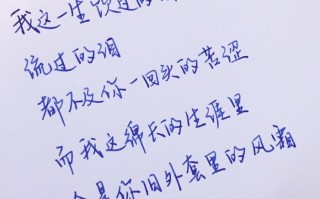 我这一生饮过的
流过的泪
都不及你一回头的苦涩
而我这绵长的生涯里
是你旧外套里的风霜